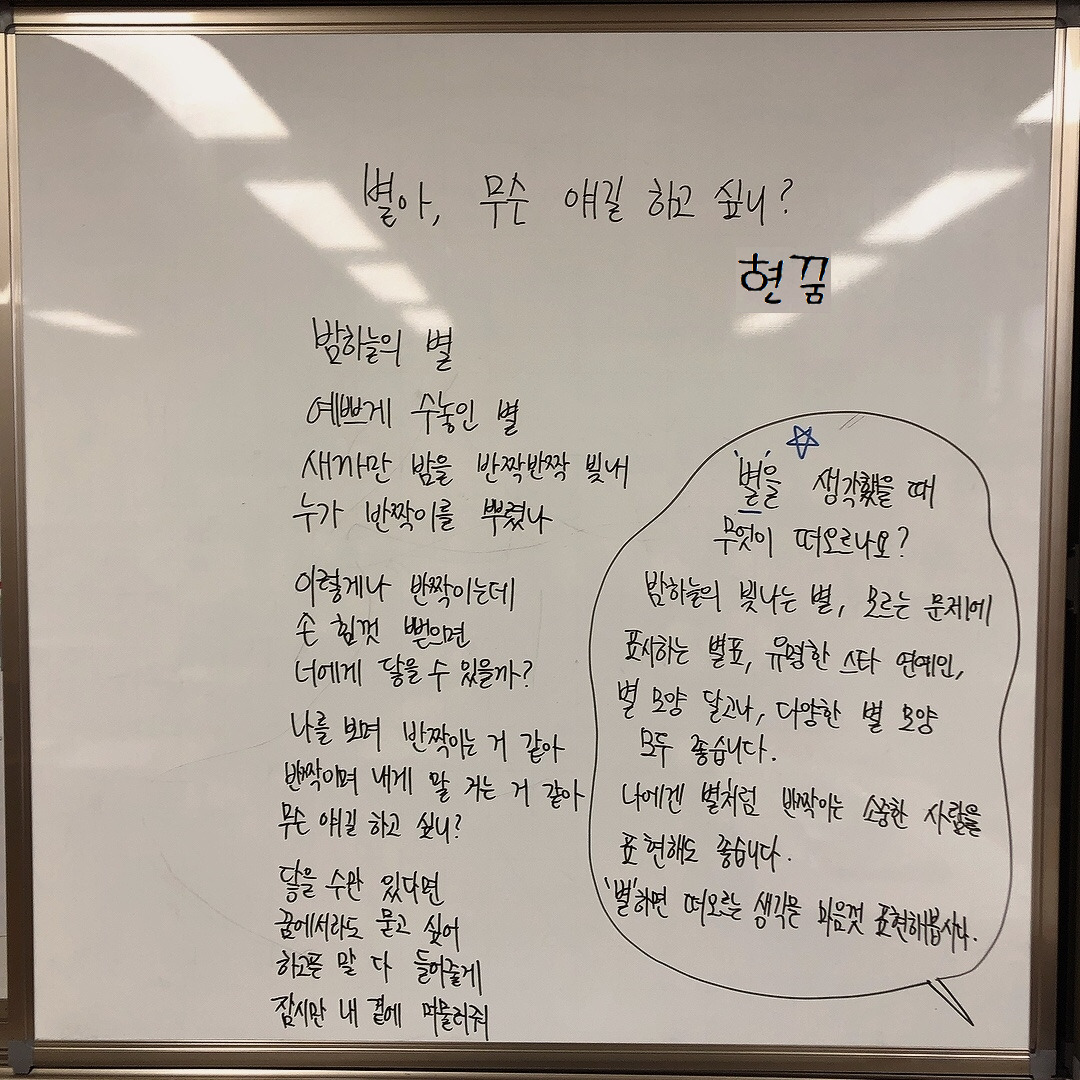 별아, 무슨 얘길 하고 싶니?
현꿈
밤하늘의 별
예쁘게 수놓인 별
새까만 밤을 반짝반짝 빛내
누가 반짝이를 뿌렸나
이렇게나 반짝이는데
손 힘껏 뻗으면
너에게 닿을 수 있을까?
나를 보며 반짝이는 거 같아
반짝이며 내게 말 거는 거 같아
무슨 얘길 하고 싶니?
닿을 수만 있다면
꿈에서라도 묻고 싶어
하고픈 말 다 들어줄게
잠시만 내 곁에 머물러줘
'별'을 생각했을 때
무엇이 떠오르나요?
밤하늘의 빛나는 별, 모르는 문제에
표시하는 별표, 유명한 스타 연예인,
별 모양 달고나, 다양한 별 모양
모두 좋습니다.
나에겐 별처럼 반짝이는 소중한 사람을
표현해도 좋습니다.
'별'하면 떠오르는 생각을 마음껏 표현해봅시다.